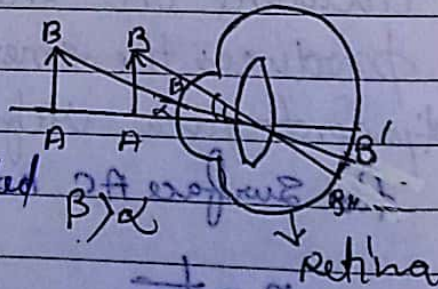 B B
β
α
A A
B'
B''
β > α
Retina